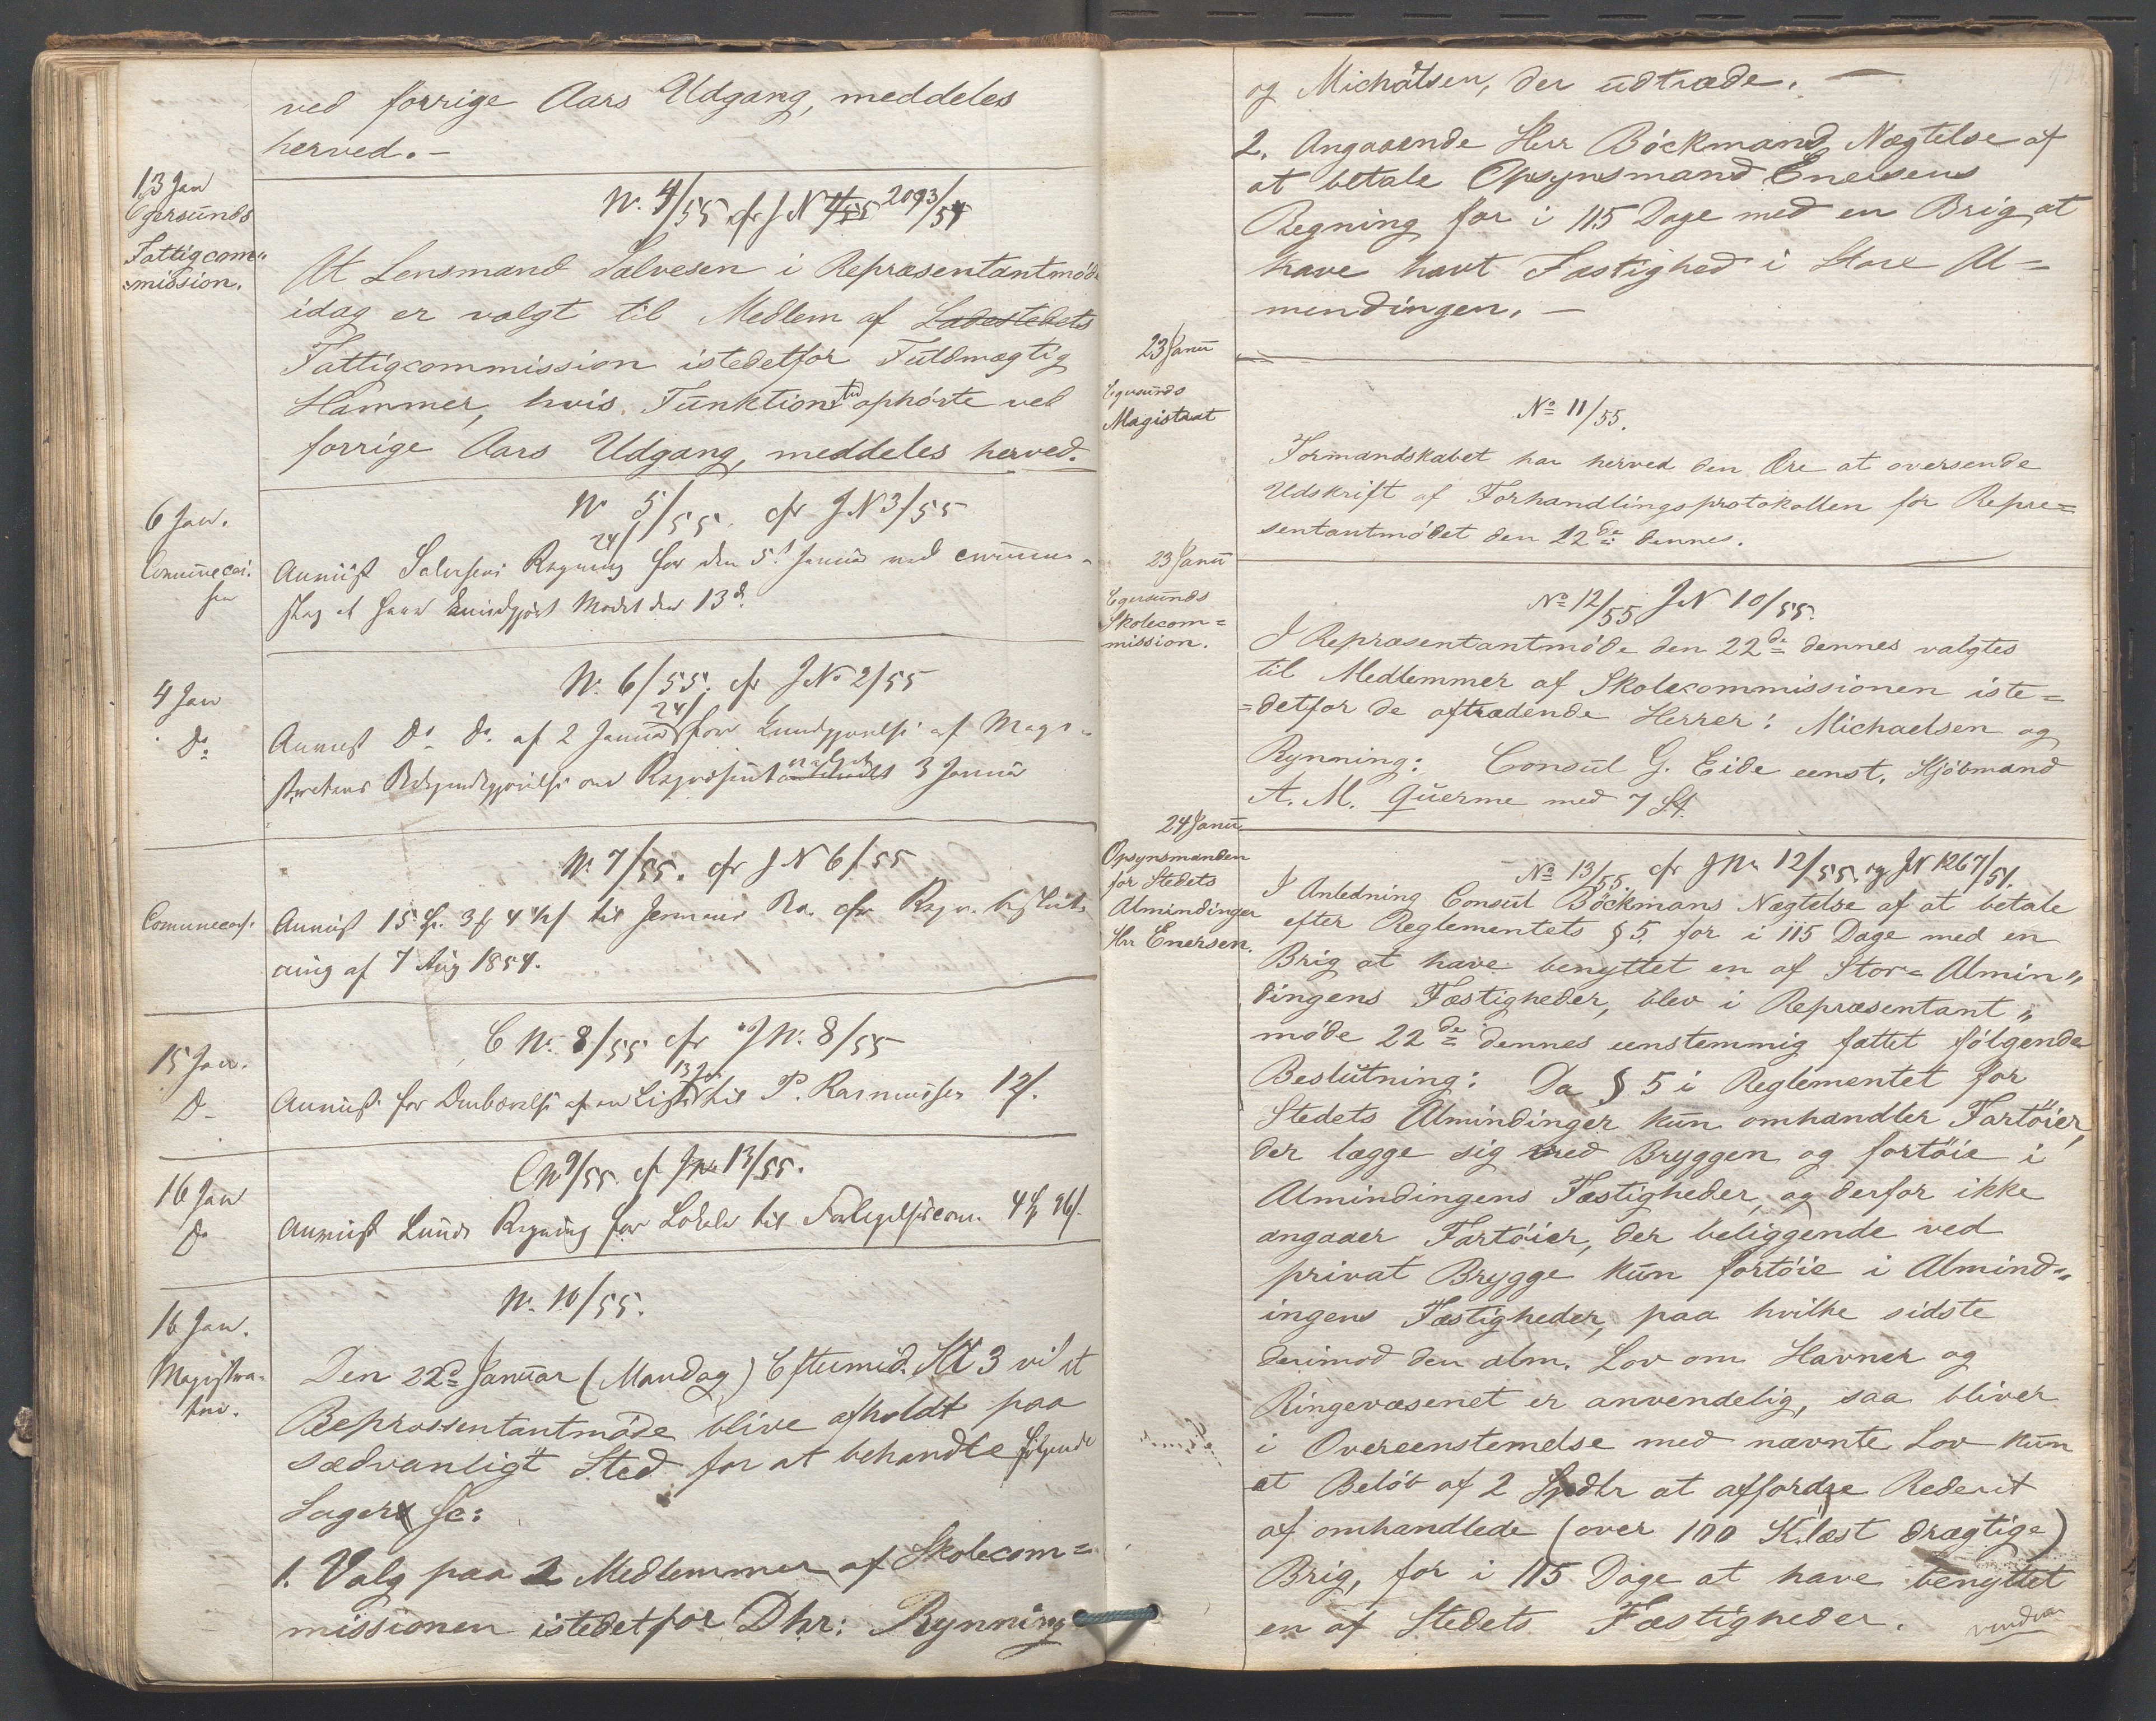 ved forrige Aars Udgang, meddeles
herved. –
13 Jan
Egersunds
Fattigcom„
mission.
N. 4/55 cfr J N 2093/54
At Lensmand Salvesen i Repræsentantmøde
idag er valgt til Medlem af Ladestedets
Fattigcommission istedetfor Fuldmægtig
Hammer, hvis Funktionstid ophørte ved
forrige Aars Udgang, meddeles herved.
6 Jan.
N 5/55. cfr J N 3/55
Anviist Salvesens Regning for den 5t Januar med
at have kundgjort Mødet den 13d.
4 Jan
Do
N. 6/55. cfr J No 2/55
24/
Anviist Do Do. af 2 Januar for Kundgjørelse af Magi-
stratens Bekjendtgjørelse om 3 Januar
N. 7/55. cfr J N 6/55
Communecas.
Anviist 15 3 4 til
af 7 Aug 1854.
15 Jan.
D–
C N. 8/55 cfr J N. 8/55
Anviist for Ombærelse af en Liste til P. Rasmussen 12/.
16 Jan
Do
C N 9/55. cf J No 13/55.
Anviist Lunds Regning for Lokale til
16 Jan.
Magistra-
ten.
N. 10/55.
Den 22d Januar (Mandag) Eftermid. Kl 3 vil et
Repræsentantmøde blive afholdt paa
sædvanligt Sted for at behandle følgende
Sager
1. Valg paa 2 Medlemmer af Skolecom=
missionen istedetfor Dhr: Rynning
og Michalsen, der udtræde. –
2. Angaaende Herr Böckmans Nægtelse af
at betale Opsynsmand Enersens
Regning for i 115 Dage med en Brig at
have havt Fæstighed i Store Al=
mendingen. –
23 Janu
Egersunds
Magistrat
No 11/55.
Formandskabet har herved den Ære at oversende
Udskrift af Forhandlingsprotokollen for Repræ=
sentantmødet den 22de dennes.
23 Janu
Egersunds
Skolecom=
mission.
No 12/55. J N 10/55.
I Repræsentantmøde den 22de dennes valgtes
til Medlemmer af Skolecommissionen iste=
=detfor de aftrædende Herrer: Michaelsen og
Rynning: Consul G. Eide eenst. Kjøbmand
A. M. Querme med 7 St.
24 Janu.
Opsynsmanden
for Stedets
Almindinger
Hrr Enersen.
No 13/55. cfr J No 12/55. og J N 1267/51.
I Anledning Consul Böckmans Nægtelse af at betale
efter Reglementets § 5. for i 115 Dage med en
Brig at have benyttet en af Stor= Almin„
dingens Fæstigheder, blev i Repræsentant„
møde 22de dennes eenstemmig fattet følgende
Beslutning: Da § 5 i Reglementet for
Stedets Almindinger kun omhandler Fartøier,
der lægge sig ved Bryggen og fortøie i
Almindingens Fæstigheder, og derfor ikke
angaaer Fartøier, der beliggende ved
privat Brygge kun fortøie i Almind=
ingens Fæstigheder, paa hvilke sidste
derimod den alm. Lov om Havner og
Ringevæsenet er anvendelig, saa bliver
i Overeenstemelse med nævnte Lov kun
et Beløb af 2 Spdlr at affordre Rederiet
af omhandlede (over 100 K.læst drægtige)
Brig, for i 115 Dage at have benyttet
en af Stedets Fæstigheder.